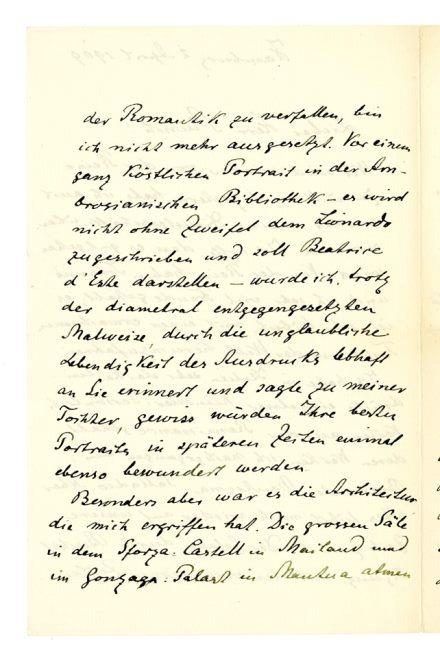 der Romantik zu verfallen, bin
ich nicht mehr ausgesetzt. Vor einem
ganz köstlichen Portrait in der Am-
brosianischen Bibliothek – es wird
nicht ohne Zweifel dem Lionardo
zugeschrieben und soll Beatrice
d'Este darstellen – wurde ich, trotz
der diametral entgegengesetzten
Malweise, durch die unglaubliche
Lebendigkeit des Ausdrucks lebhaft
an Sie erinnert und sagte zu meiner
Tochter, gewiss würden Ihre besten
Portraits in späteren Zeiten einmal
ebenso bewundert werden
Besonders aber war es die Architectur
die mich ergriffen hat. Die grossen Säle
in dem Sforza-Castell in Mailand und
im Gonzaga-Palast in Mantua atmen